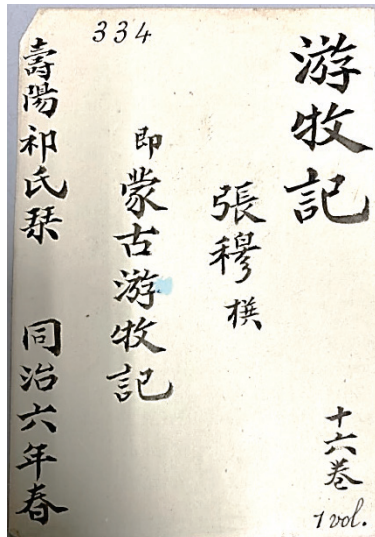 334
游牧記
張穆撰
十六卷
1 vol.
即蒙古游牧記
壽陽祁氏栞 同治六年春